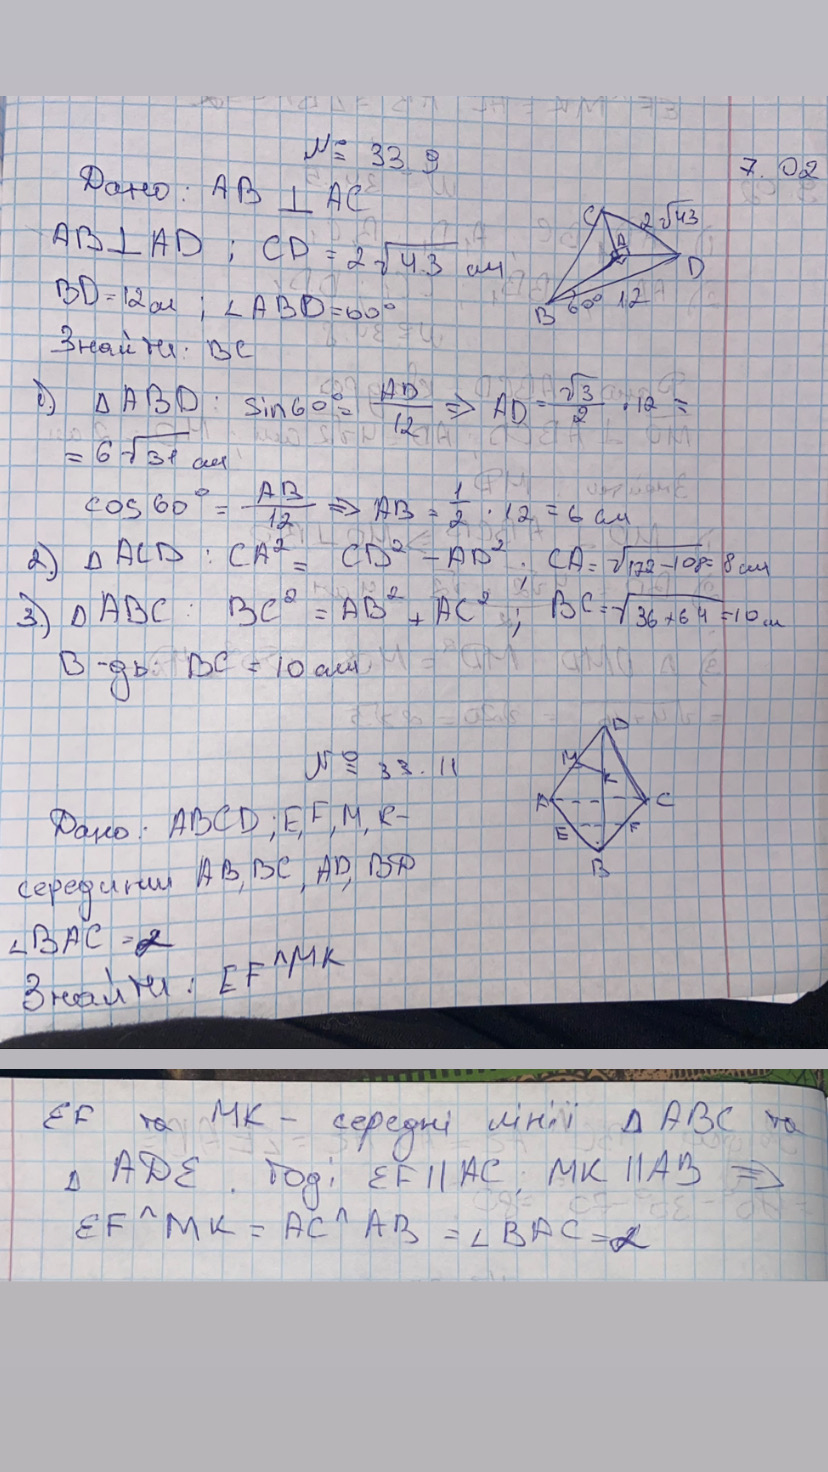 № 33.9
7.02
Дано: AB ⊥ AC
AB ⊥ AD ; CD = 2√43 см
BD = 12 см ; ∠ABD = 60°
Знайти: BC
C 2√43
A
D
B 60° 12
1) △ ABD : sin60° = AD/12 => AD = √3/2 · 12 =
= 6√3 см
cos60° = AB/12 => AB = 1/2 · 12 = 6 см
2) △ ACD : CA² = CD² - AD² ; CA = √172-108 = 8 см
3) △ ABC : BC² = AB² + AC² ; BC = √36+64 = 10 см
В-дь: BC = 10 см
№ 33.11
Дано: ABCD ; E, F, M, K -
середини AB, BC, AD, BD
∠BAC = α
Знайти: EF ^ MK
D
M
K
A C
E F
B
EF та MK - середні лінії △ ABC та
△ ADE . Тоді EF || AC ; MK || AB =>
EF ^ MK = AC ^ AB = ∠BAC = α